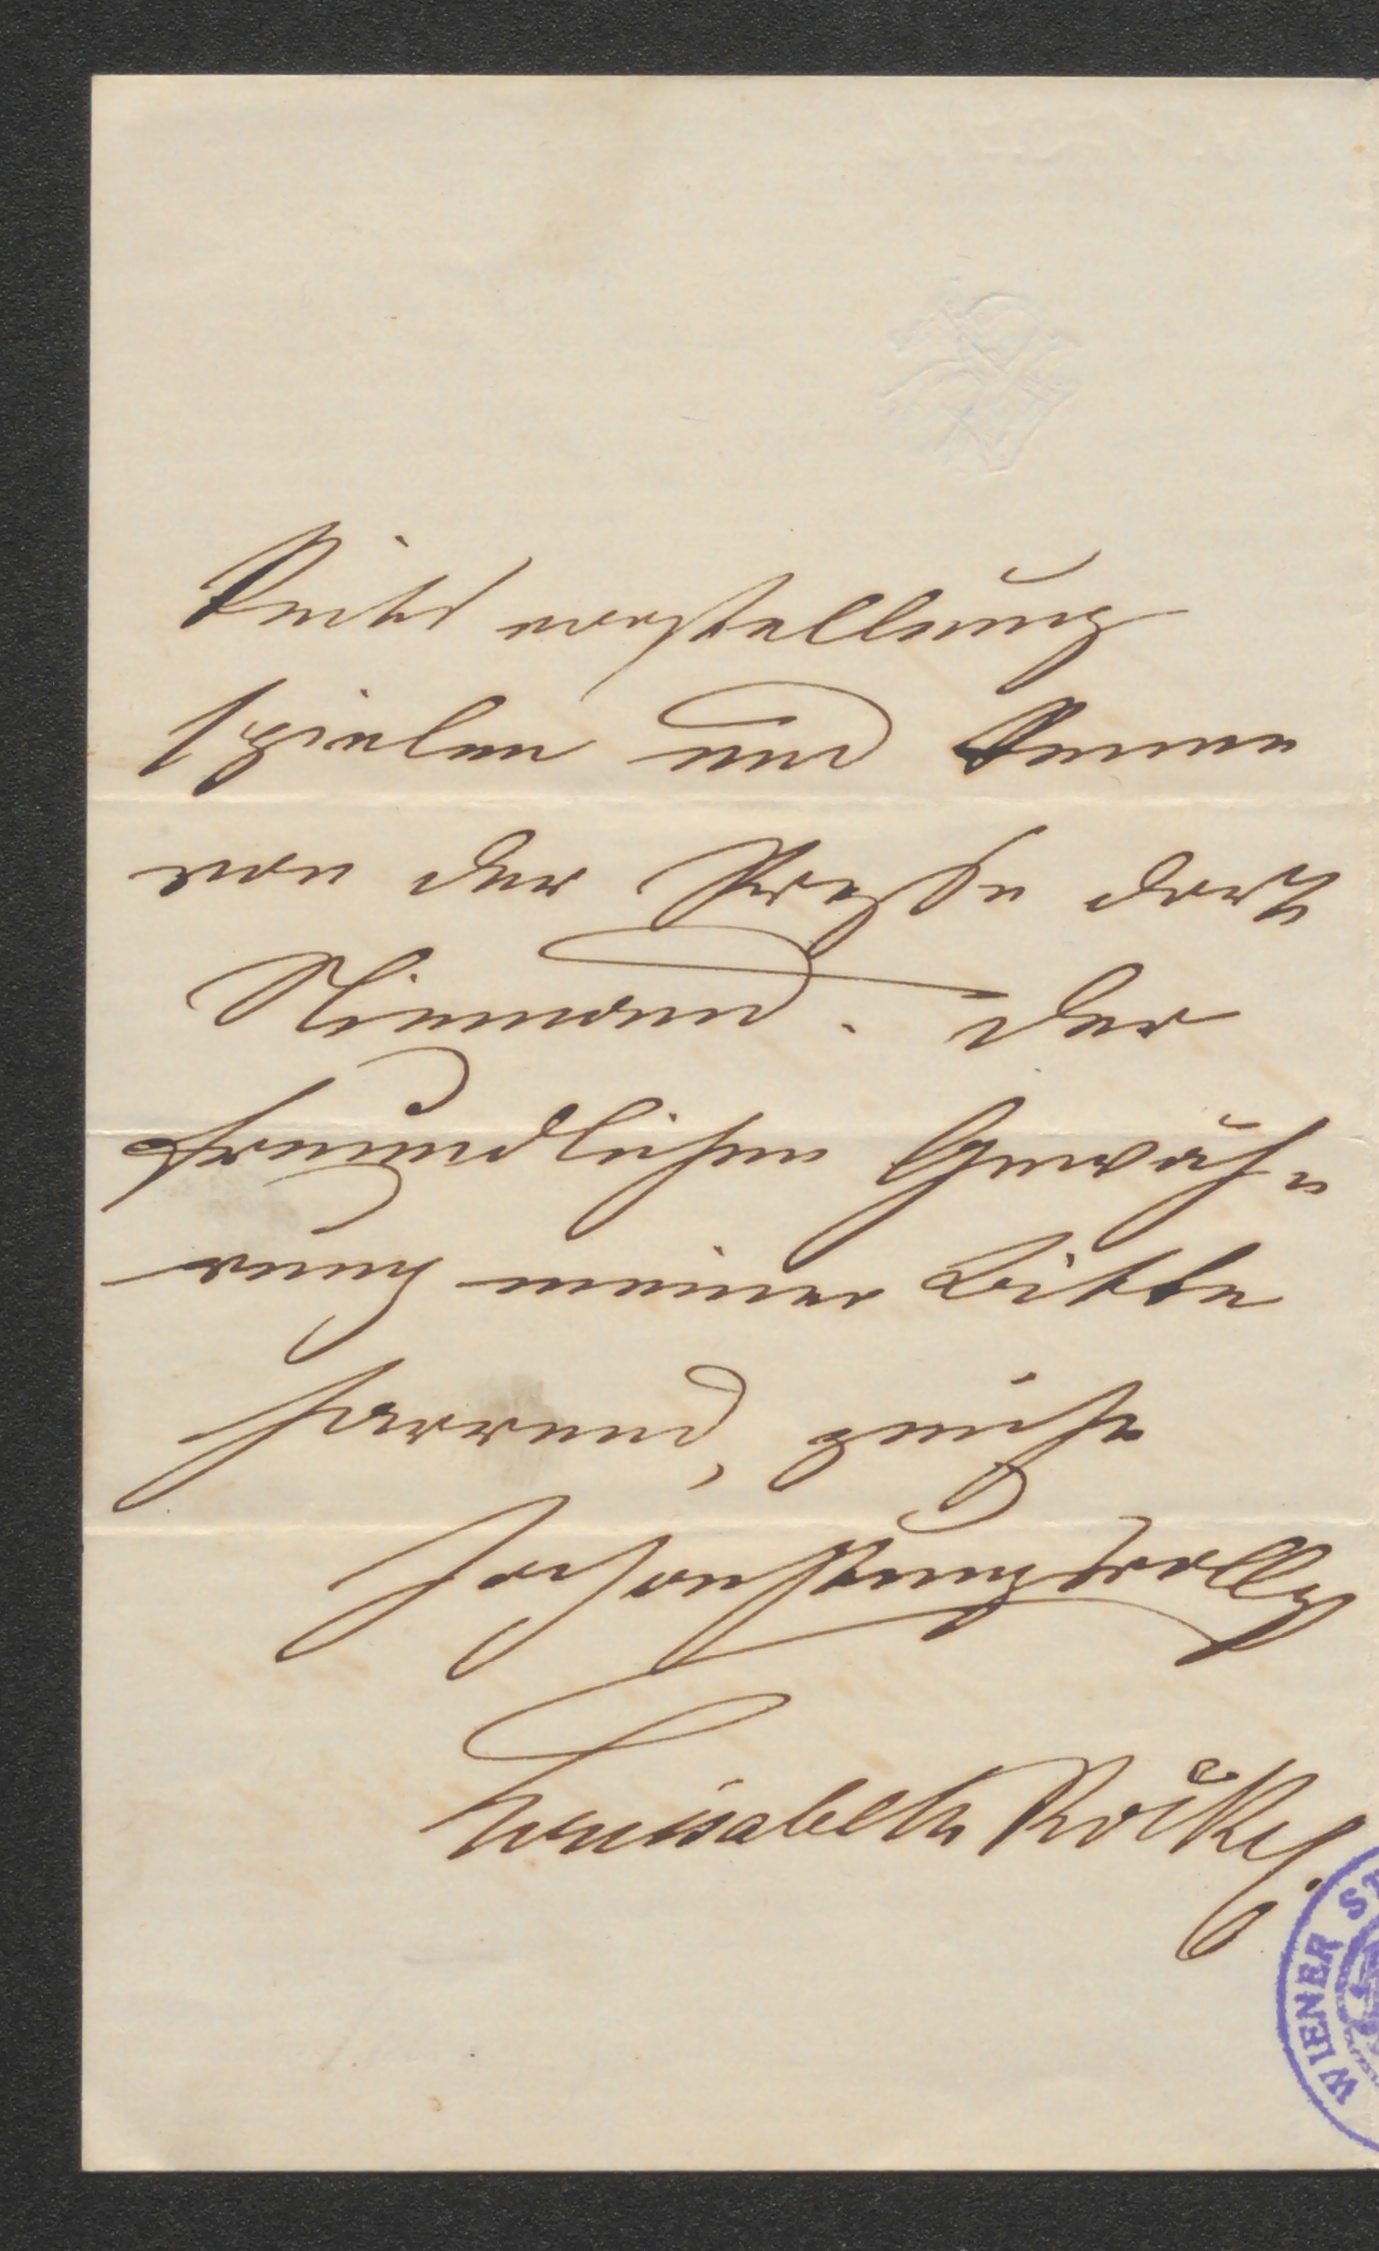 vorstellung
spielen und kenne
von der Presse dort
Niemand. Der
freundlichen Gewäh-
rung meiner Bitte
harrend, zeichne
hochachtungsvoll
Louisabeth Röckel.
WIENER ST